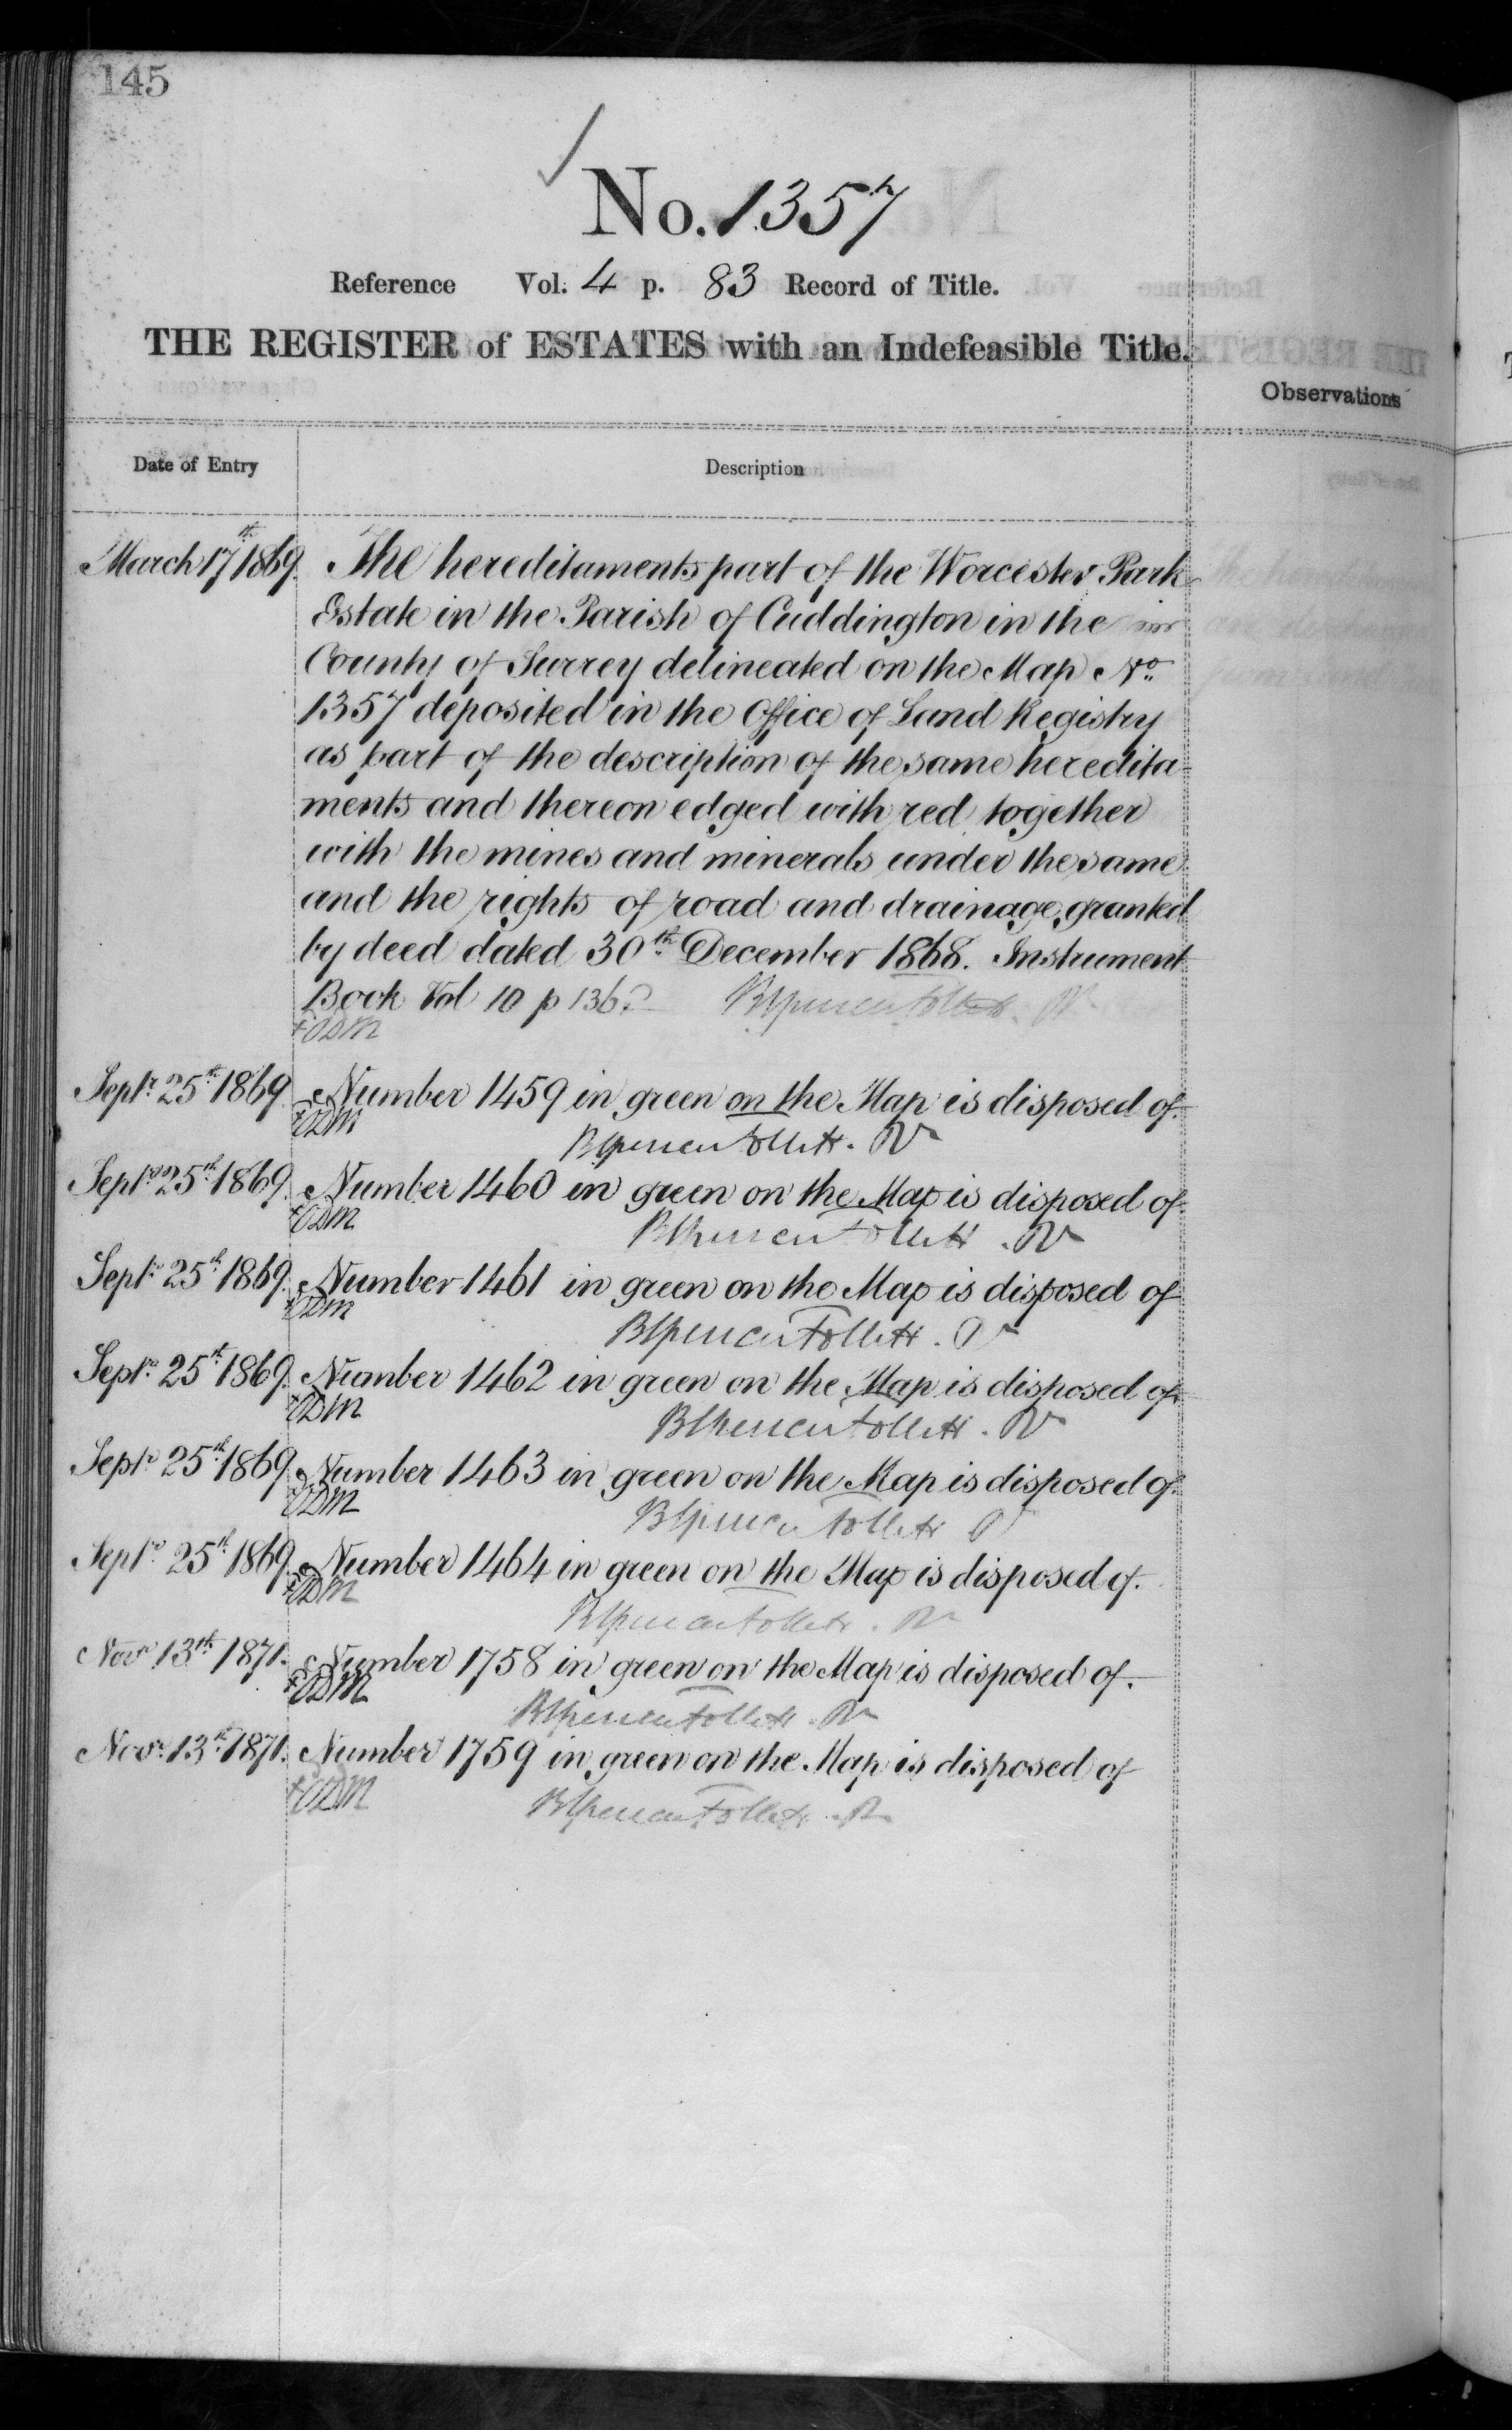 145
No. 1357
Reference Vol. 4 p. 83 Record of Title.
THE REGISTER of ESTATES with an Indefeasible Title.
Observations
Date of Entry Description
March 17th 1869. The hereditaments part of the Worcester Park
Estate in the Parish of Cuddington in the
County of Surrey delineated on the Map No.
1357 deposited in the Office of Land Registry
as part of the description of the same heredita-
ments and thereon edged with red together
with the mines and minerals under the same
and the rights of road and drainage granted
by deed dated 30th December 1868. Instrument
Book Vol 10 p 136. BSpencerFollett. R
Septr. 25th 1869 Number 1459 in green on the Map is disposed of.
BSpencerFollett. R
Septr. 25th 1869. Number 1460 in green on the Map is disposed of.
BSpencerFollett. R
Septr. 25th 1869. Number 1461 in green on the Map is disposed of
BSpencerFollett. R
Septr. 25th 1869. Number 1462 in green on the Map is disposed of.
BSpencerFollett. R
Septr. 25th 1869. Number 1463 in green on the Map is disposed of.
BSpencerFollett R
Septr. 25th 1869. Number 1464 in green on the Map is disposed of.
BSpencerFollett. R
Novr. 13th 1871. Number 1758 in green on the Map is disposed of.
BSpencerFollett. R
Novr. 13th 1871. Number 1759 in green on the Map is disposed of
BSpencerFollett. R